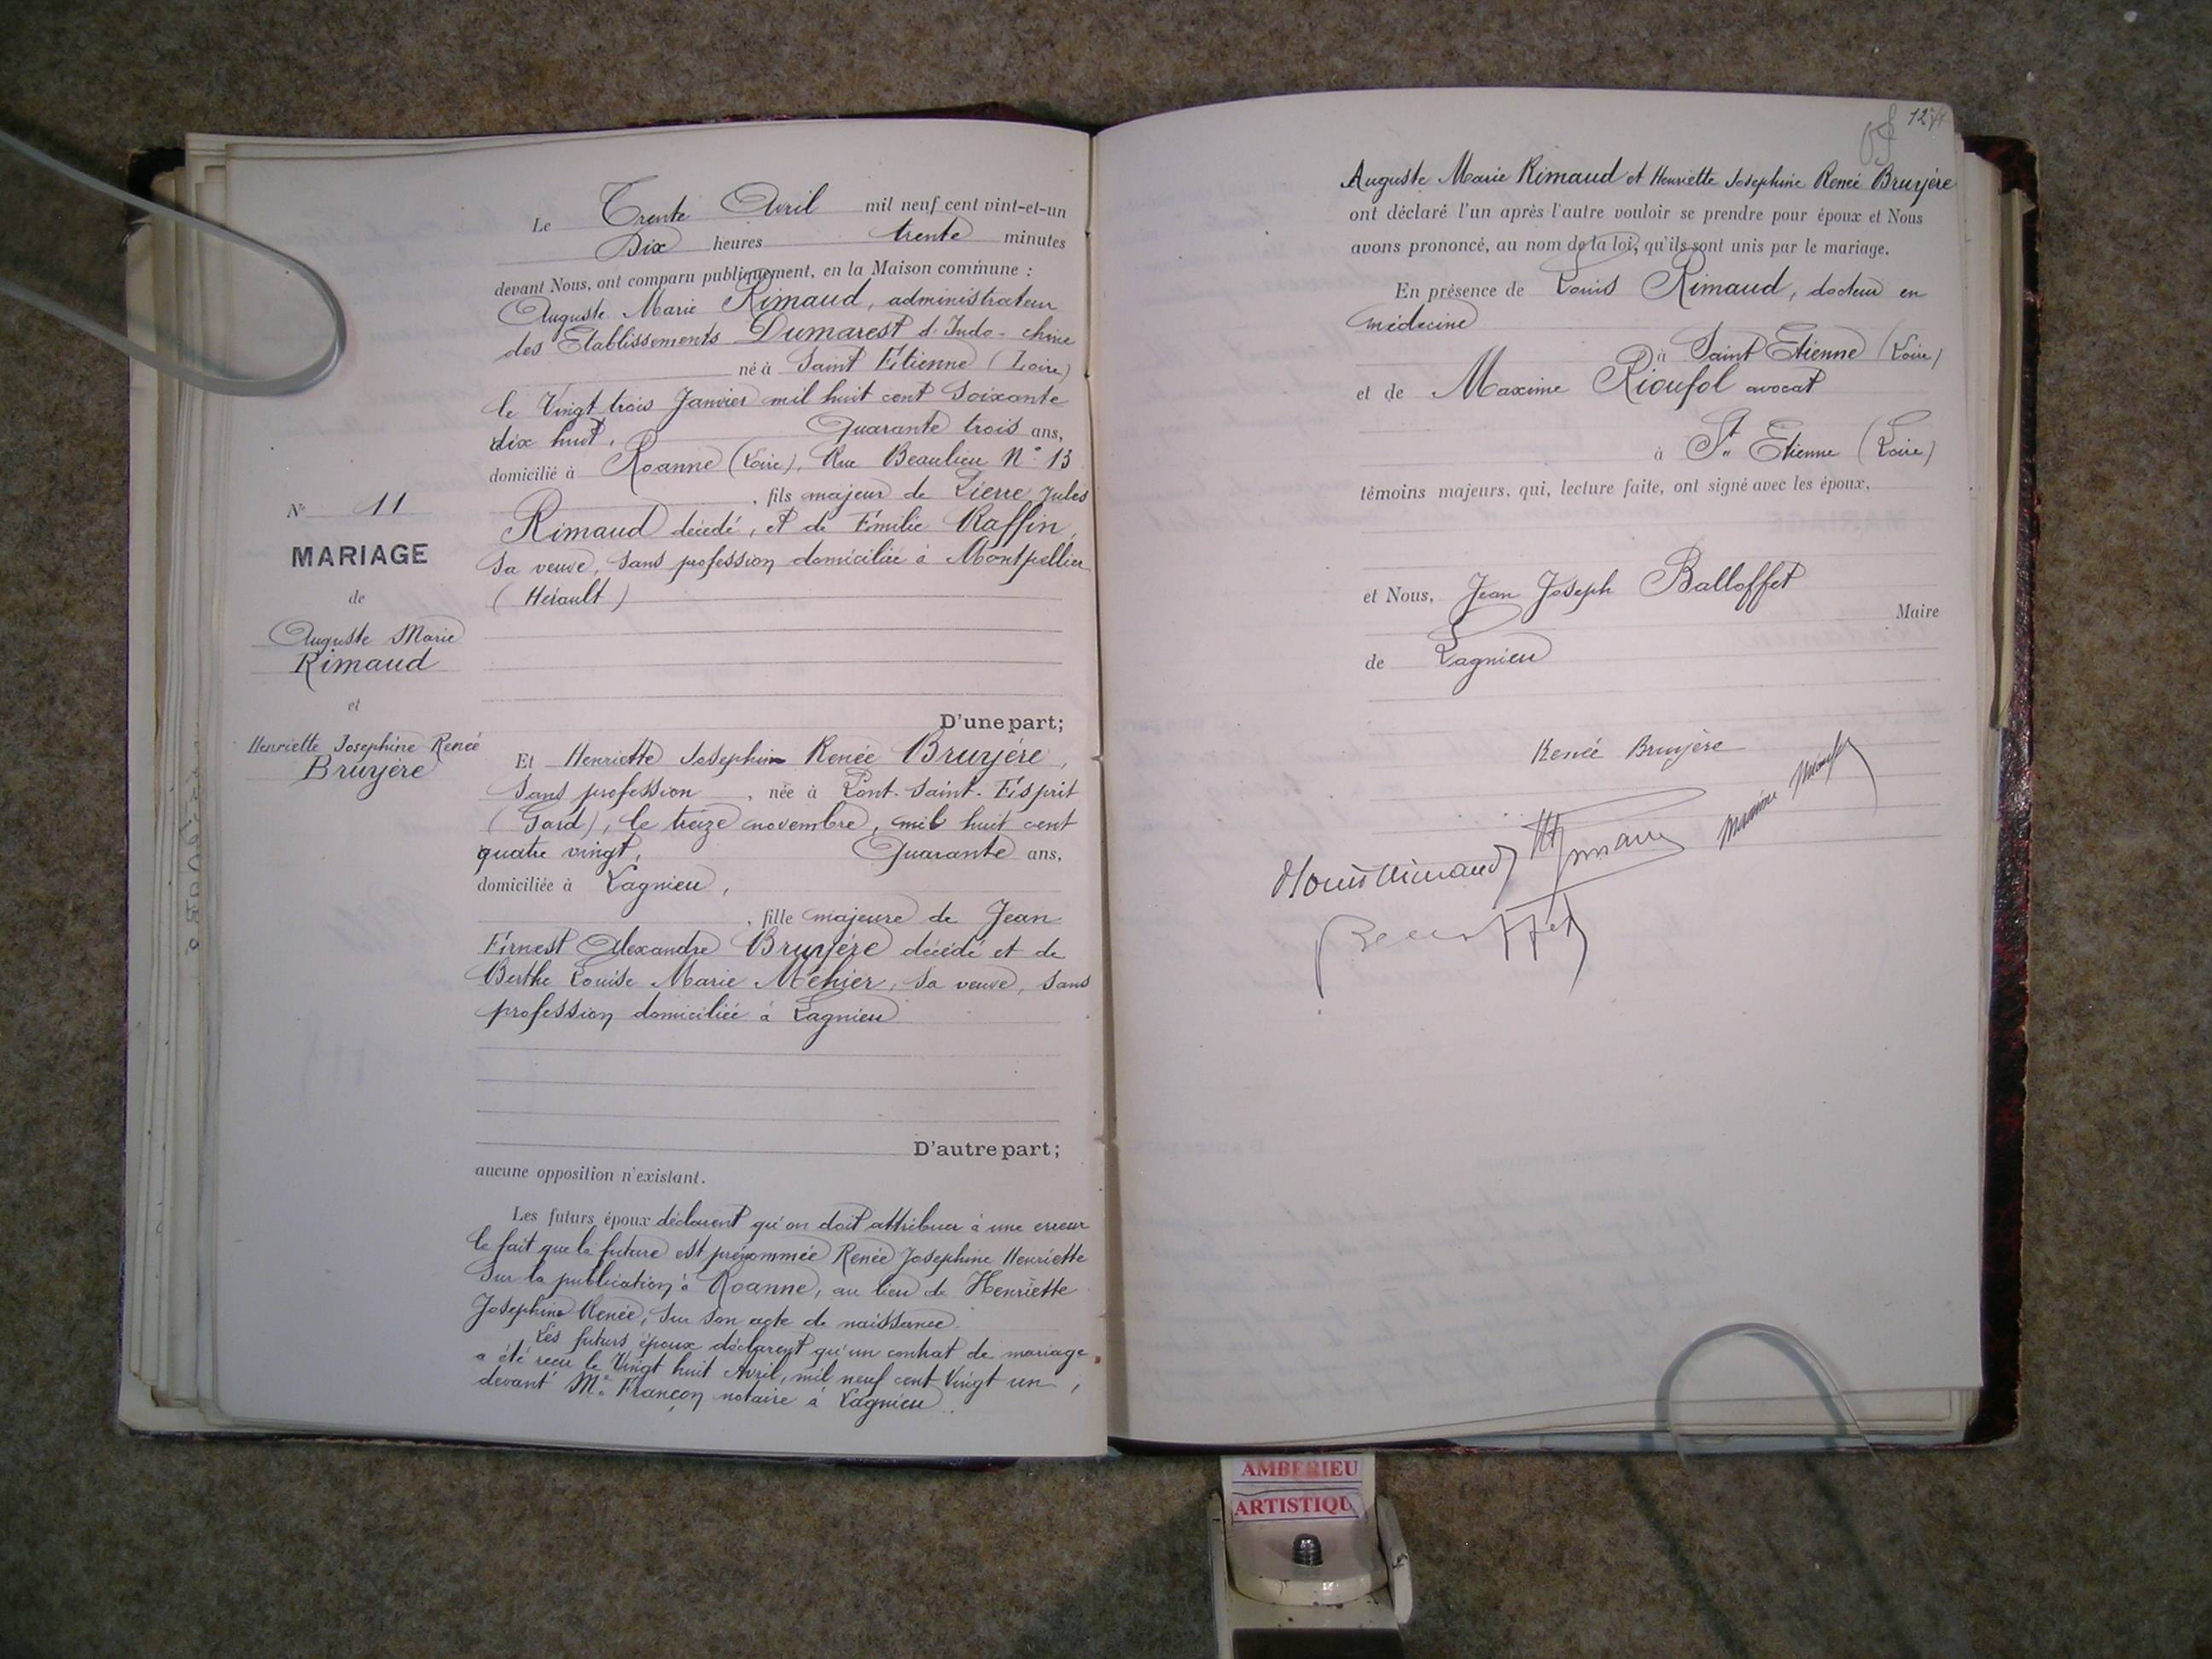 Le Trente Avril mil neuf cent vint-et-un
Dix heures trente minutes
devant Nous, ont comparu publiquement, en la Maison commune :
Auguste Marie Rimaud, administrateur
des Etablissements Dumarest d'Indo-chine
né à Saint Etienne (Loire)
le Vingt trois Janvier mil huit cent Soixante
dix huit, Quarante trois ans,
domicilié à Roanne (Loire), Rue Beaulieu N° 13
, fils majeur de Pierre Jules
Rimaud décédé, et de Emilie Raffin,
Sa veuve, Sans profession domiciliée à Montpellier
(Hérault)
N° 11
MARIAGE
de
Auguste Marie
Rimaud
et
Henriette Josephine Renée
Bruyére
D'une part;
Et Henriette Josephine Renée Bruyére,
Sans profession, née à Pont-Saint-Esprit
(Gard), le treize novembre, mil huit cent
quatre vingt, Quarante ans,
domiciliée à Lagnieu,
, fille majeure de Jean
Ernest Alexandre Bruyére décédé et de
Berthe Louise Marie Mehier, Sa veuve, Sans
profession domiciliée à Lagnieu
D'autre part;
aucune opposition n'existant.
Les futurs époux déclarent qu'on doit attribuer à une erreur
le fait que la future est prénommée Renée Josephine Henriette
Sur la publication à Roanne, au lieu de Henriette
Josephine Renée, Sur Son acte de naissance.
Les futurs époux déclarent qu'un contrat de mariage
a été reçu le Vingt huit Avril, mil neuf cent Vingt un,
devant Me Françon notaire à Lagnieu.
Auguste Marie Rimaud et Henriette Josephine Renée Bruyére
ont déclaré l'un après l'autre vouloir se prendre pour époux et Nous
avons prononcé, au nom de la loi, qu'ils sont unis par le mariage.
En présence de Louis Rimaud, docteur en
médecine
à Saint Etienne (Loire)
et de Maxime Rioufol avocat
à St Etienne (Loire)
témoins majeurs, qui, lecture faite, ont signé avec les époux,
et Nous, Jean Joseph Balloffet
Maire
de Lagnieu
Renée Bruyère
Maxime Rioufol
Louis Rimaud
Balloffet
AMBERIEU
ARTISTIQU